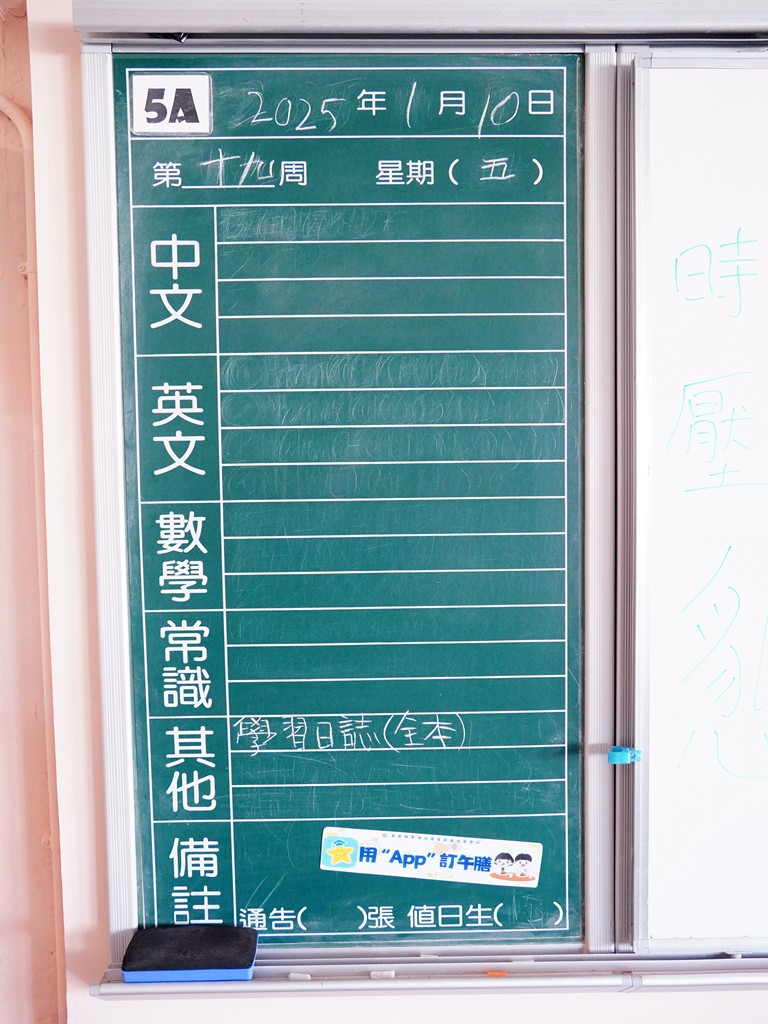 5A 2025年1月10日
第十九周 星期(五)
中文
英文
數學
常識
其他 學習日誌(全本)
備註
用“App”訂午膳
通告( )張 值日生( )
時
壓